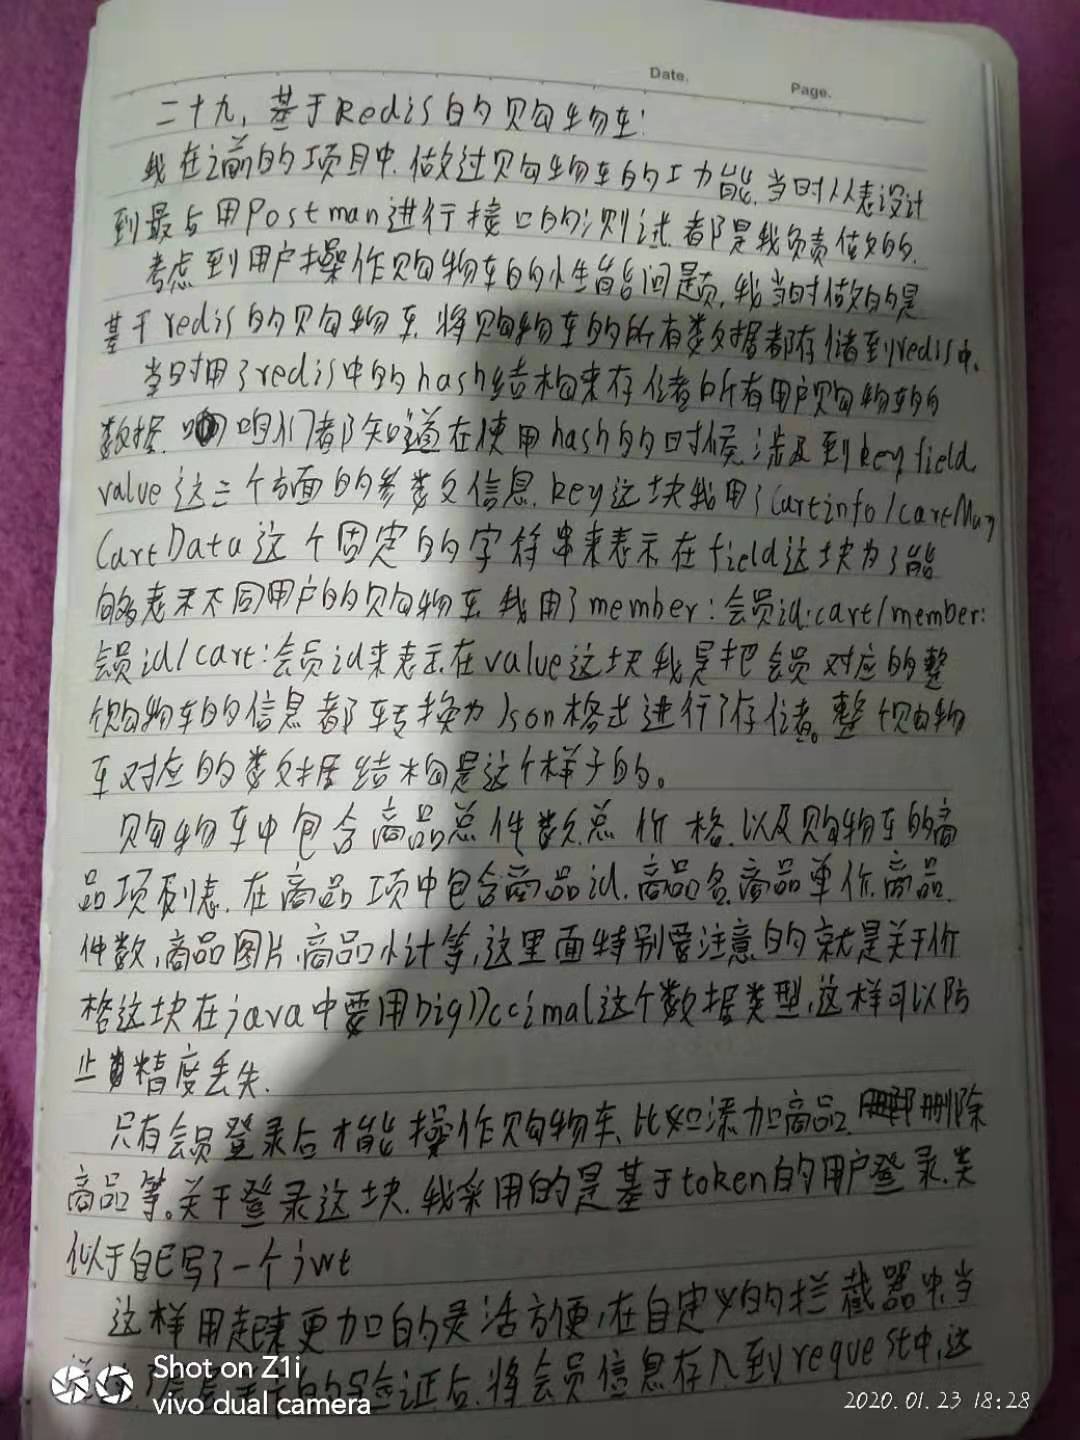 Date.
Page.
二十九,基于Redis的购物车:
我在之前的项目中.做过购物车的功能.当时从表设计
到最后用Postman进行接口的测试.都是我负责做的.
考虑到用户操作购物车的性能问题,我当时做的是
基于redis的购物车.将购物车的所有数据都存储到redis中.
当时用了redis中的hash结构来存储所有用户购物车的
数据.咱们都知道在使用hash的时候.涉及到key field.
value这三个方面的参数信息.key这块我用了Cartinfo/cartMap
CartData这个固定的字符串来表示.在field这块为了能
够表示不同用户的购物车.我用了member:会员id:cart/member:
会员id/cart:会员id来表示.在value这块我是把会员对应的整
个购物车的信息都转换为Json格式进行了存储。整个购物
车对应的数据结构是这个样子的。
购物车中包含商品总件数.总价格.以及购物车的商
品项列表.在商品项中包含商品id.商品名.商品单价.商品
件数,商品图片,商品小计等,这里面特别要注意的就是关于价
格这块在java中要用bigDecimal这个数据类型,这样可以防
止精度丢失.
只有会员登录后才能操作购物车、比如添加商品.删除
商品等。关于登录这块.我采用的是基于token的用户登录.类
似于自已写了一个jwt
这样用起来更加的灵活方便,在自定义的拦截器中,当
的验证后.将会员信息存入到request中,这
Shot on Z1i
vivo dual camera
2020.01.23 18:28